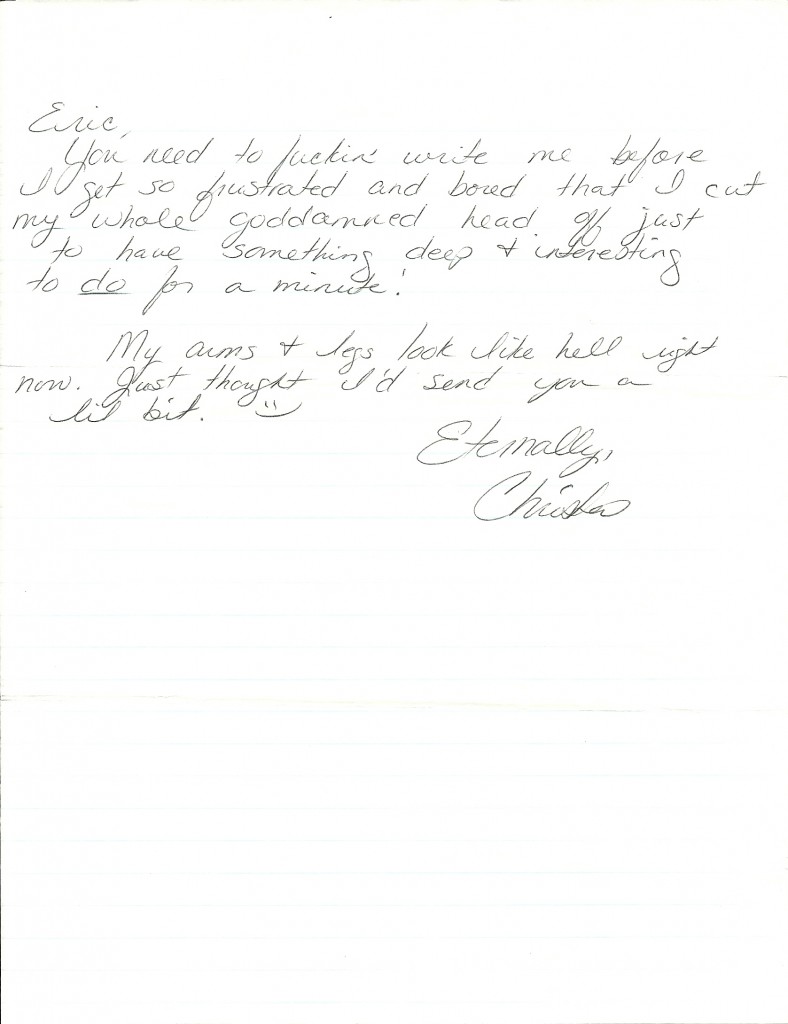 Eric,
You need to fuckin' write me before
I get so frustrated and bored that I cut
my whole goddamned head off just
to have something deep & interesting
to do for a minute!
My arms & legs look like hell right
now. Just thought I'd send you a
lil bit. :)
Eternally,